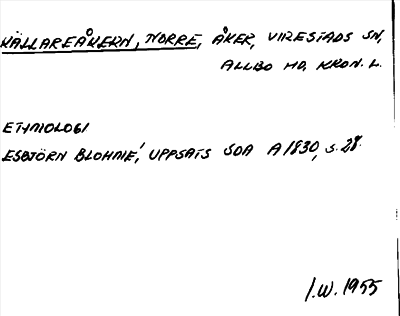 KÄLLAREÅKERN, NORRE, ÅKER, VIRESTADS SN,
ALLBO HD, KRON. L.
ETYMOLOGI
ESBJÖRN BLOHMÉ, UPPSATS SOA A 1830, s. 28.
I.W. 1955